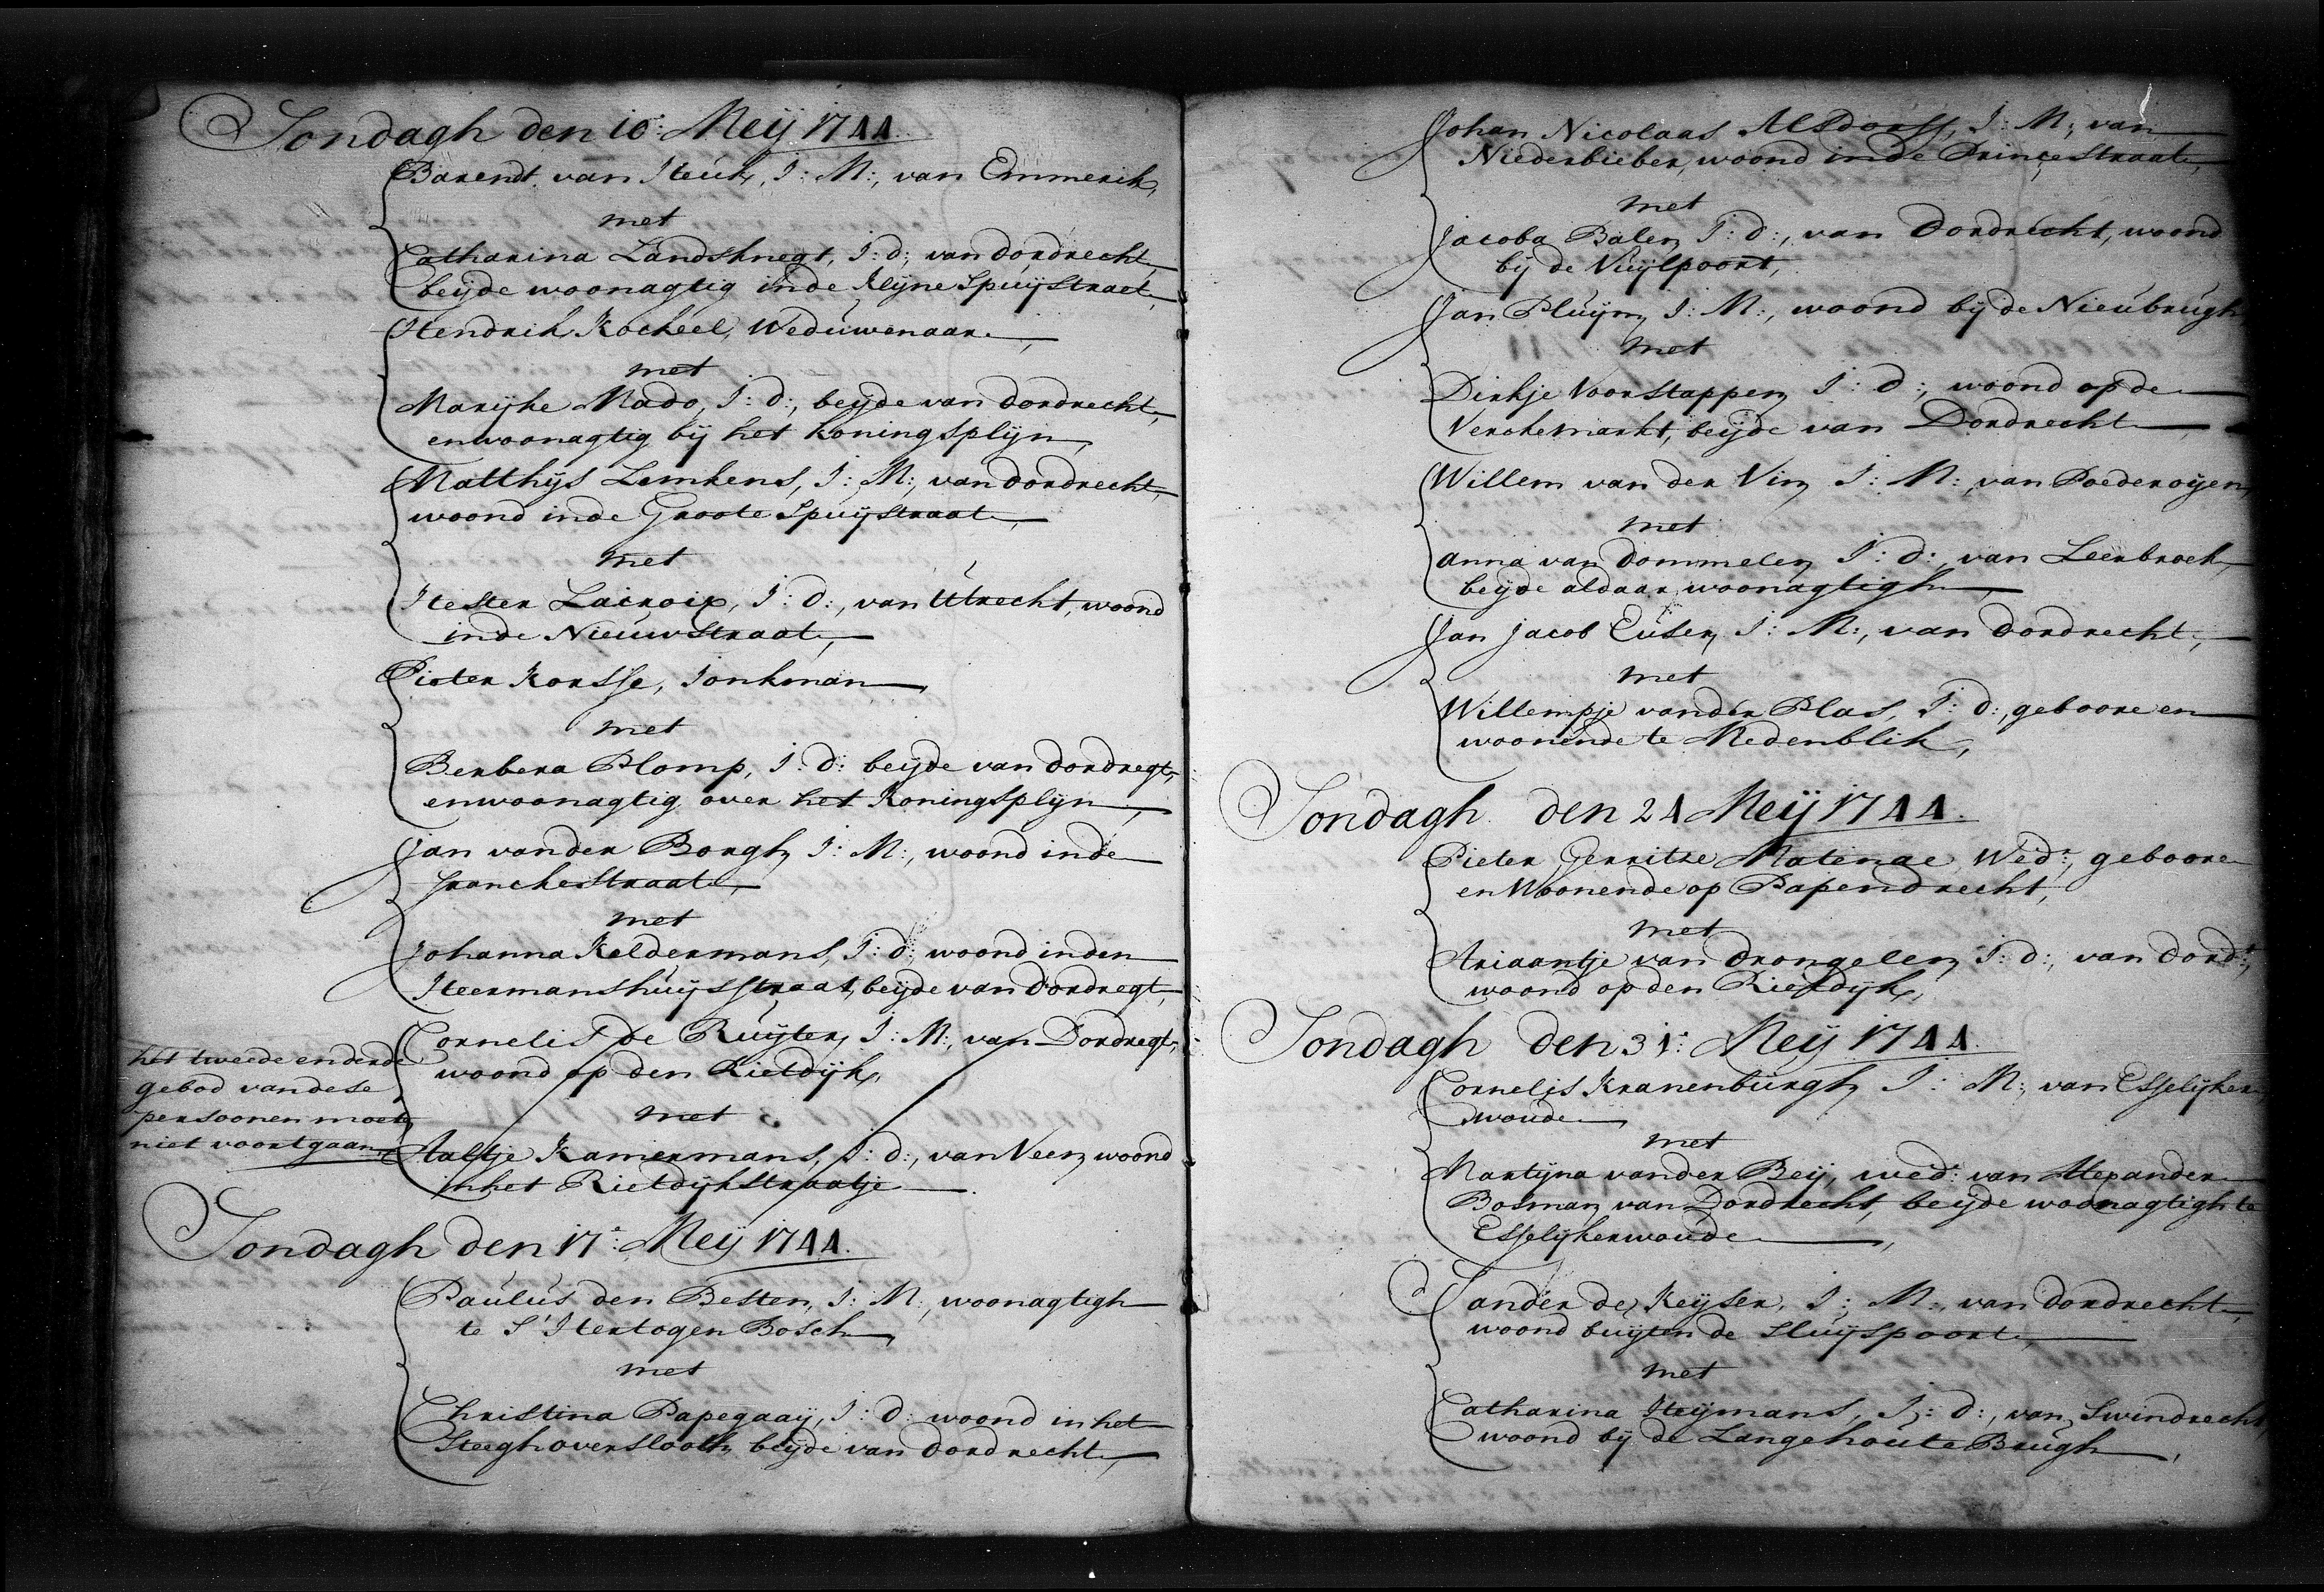 Sondagh den 10: Meij 1744.
Barendt van Heuk, J: M:, van Emmerik,
met
Catharina Landsknegt, J: d:, van dordrecht,
beijde woonagtig inde Klijne Spuijstraet,
Hendrik Kocheel, Weduwenaar,
met
Marijke Mado, J: d:, beijde van dordrecht,
en woonagtig bij het koningsplijn,
Matthijs Lemkens, J: M:, van dordrecht,
woond inde Groote Spuijstraat,
met
Hester Lacroix, J: d:, van Utrecht, woond
inde Nieuwstraat,
Pieter Korsse, Jonkman,
met
Berbera Plomp, J: d: beijde van dordregt,
en woonagtig over het Koningsplijn,
Jan vander Borgh, J: M:, woond inde
franchestraat,
met
Johanna Keldermans, J: d:, woond inden
Heermanshuijsstraat, beijde van dordregt,
Cornelis de Ruijter, J: M:, van Dordregt,
woond op den Rietdijk,
met
Aaltje Kamermans, J: d:, van Veen, woond
inhet Rietdijkstraatje.
het tweede en derde
gebod van dese
persoonen moet
niet voortgaan
Sondagh den 17: Meij 1744.
Paulus den Besten, J: M:, woonagtigh
te S'Hertogen Bosch,
met
Christina Papegaaij, J: d: woond in het
Steeghoverslooth, beijde van dordrecht,
Johan Nicolaas Alsdorff, J: M:, van
Niederbieber, woond inde Prinçestraat,
met
Jacoba Balen, J: d:, van Dordrecht, woond
bij de Vuijlpoort,
Jan Pluijm, J: M:, woond bij de Nieubrugh,
met
Dirkje Voorstappen, J: d:, woond op de
Verckemarkt, beijde van Dordrecht
Willem van der Vin, J: M:, van Poederoijen,
met
anna van dommelen, J: d:, van Leerbroek,
beijde aldaar woonagtigh,
Jan Jacob Euser, J: M:, van dordrecht,
met
Willempje vander Plas, J: d:, geboore en
woonende te Medenblik,
Sondagh den 24 Meij 1744.
Pieter Gerritse Matenae, Wedr:, geboore
en Woonende op Papendrecht,
met
Ariaantje van drongelen, J: d:, van dordt,
woond op den Rietdijk,
Sondagh den 31: Meij 1744.
Cornelis Kranenburgh, J: M:, van Esselijker
woude
met
Martijna vander Beij, wed: van Alexander
Bosman, van Dordrecht, beijde woonagtigh te
Esselijkerwoude,
Sander de Keijser, J: M:, van dordrecht,
woond buijten de Sluijspoort,
met
Catharina Heijmans, J: d:, van Swindrecht,
woond bij de Langehoute Brugh,